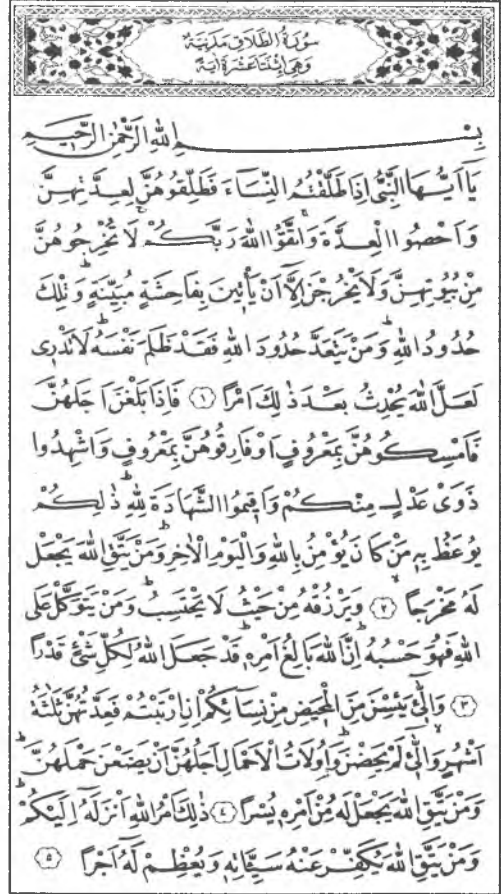 سُورَةُ الطَّلَاقِ مَدَنِيَّةٌ
وَهِيَ اِثْنَتَا عَشْرَةَ اٰيَةً
بِسْمِ اللهِ الرَّحْمٰنِ الرَّحِيمِ
يَآ اَيُّهَا النَّبِيُّ اِذَا طَلَّقْتُمُ النِّسَآءَ فَطَلِّقُوهُنَّ لِعِدَّتِهِنَّ
وَاَحْصُوا الْعِدَّةَ وَاتَّقُوا اللهَ رَبَّكُمْ لَا تُخْرِجُوهُنَّ
مِنْ بُيُوتِهِنَّ وَلَا يَخْرُجْنَ اِلَّآ اَنْ يَأْتِينَ بِفَاحِشَةٍ مُبَيِّنَةٍ وَتِلْكَ
حُدُودُ اللهِ وَمَنْ يَتَعَدَّ حُدُودَ اللهِ فَقَدْ ظَلَمَ نَفْسَهُ لَا تَدْرِى
لَعَلَّ اللهَ يُحْدِثُ بَعْدَ ذٰلِكَ اَمْرًا ﴿١﴾ فَاِذَا بَلَغْنَ اَجَلَهُنَّ
فَاَمْسِكُوهُنَّ بِمَعْرُوفٍ اَوْ فَارِقُوهُنَّ بِمَعْرُوفٍ وَاَشْهِدُوا
ذَوَىْ عَدْلٍ مِنْكُمْ وَاَقِيمُوا الشَّهَادَةَ لِلهِ ذٰلِكُمْ
يُوعَظُ بِهِ مَنْ كَانَ يُؤْمِنُ بِاللهِ وَالْيَوْمِ الْاٰخِرِ وَمَنْ يَتَّقِ اللهَ يَجْعَلْ
لَهُ مَخْرَجًا ﴿٢﴾ وَيَرْزُقْهُ مِنْ حَيْثُ لَا يَحْتَسِبُ وَمَنْ يَتَوَكَّلْ عَلَى
اللهِ فَهُوَ حَسْبُهُ اِنَّ اللهَ بَالِغُ اَمْرِهِ قَدْ جَعَلَ اللهُ لِكُلِّ شَيْءٍ قَدْرًا
﴿٣﴾ وَالّٰٓئ يَئِسْنَ مِنَ الْمَحِيضِ مِنْ نِسَآئِكُمْ اِنِ ارْتَبْتُمْ فَعِدَّتُهُنَّ ثَلٰثَةُ
اَشْهُرٍ وَالّٰٓئ لَمْ يَحِضْنَ وَاُولَاتُ الْاَحْمَالِ اَجَلُهُنَّ اَنْ يَضَعْنَ حَمْلَهُنَّ
وَمَنْ يَتَّقِ اللهَ يَجْعَلْ لَهُ مِنْ اَمْرِهِ يُسْرًا ﴿٤﴾ ذٰلِكَ اَمْرُ اللهِ اَنْزَلَهُٓ اِلَيْكُمْ
وَمَنْ يَتَّقِ اللهَ يُكَفِّرْ عَنْهُ سَيِّـَٔاتِهِ وَيُعْظِمْ لَهُٓ اَجْرًا ﴿٥﴾